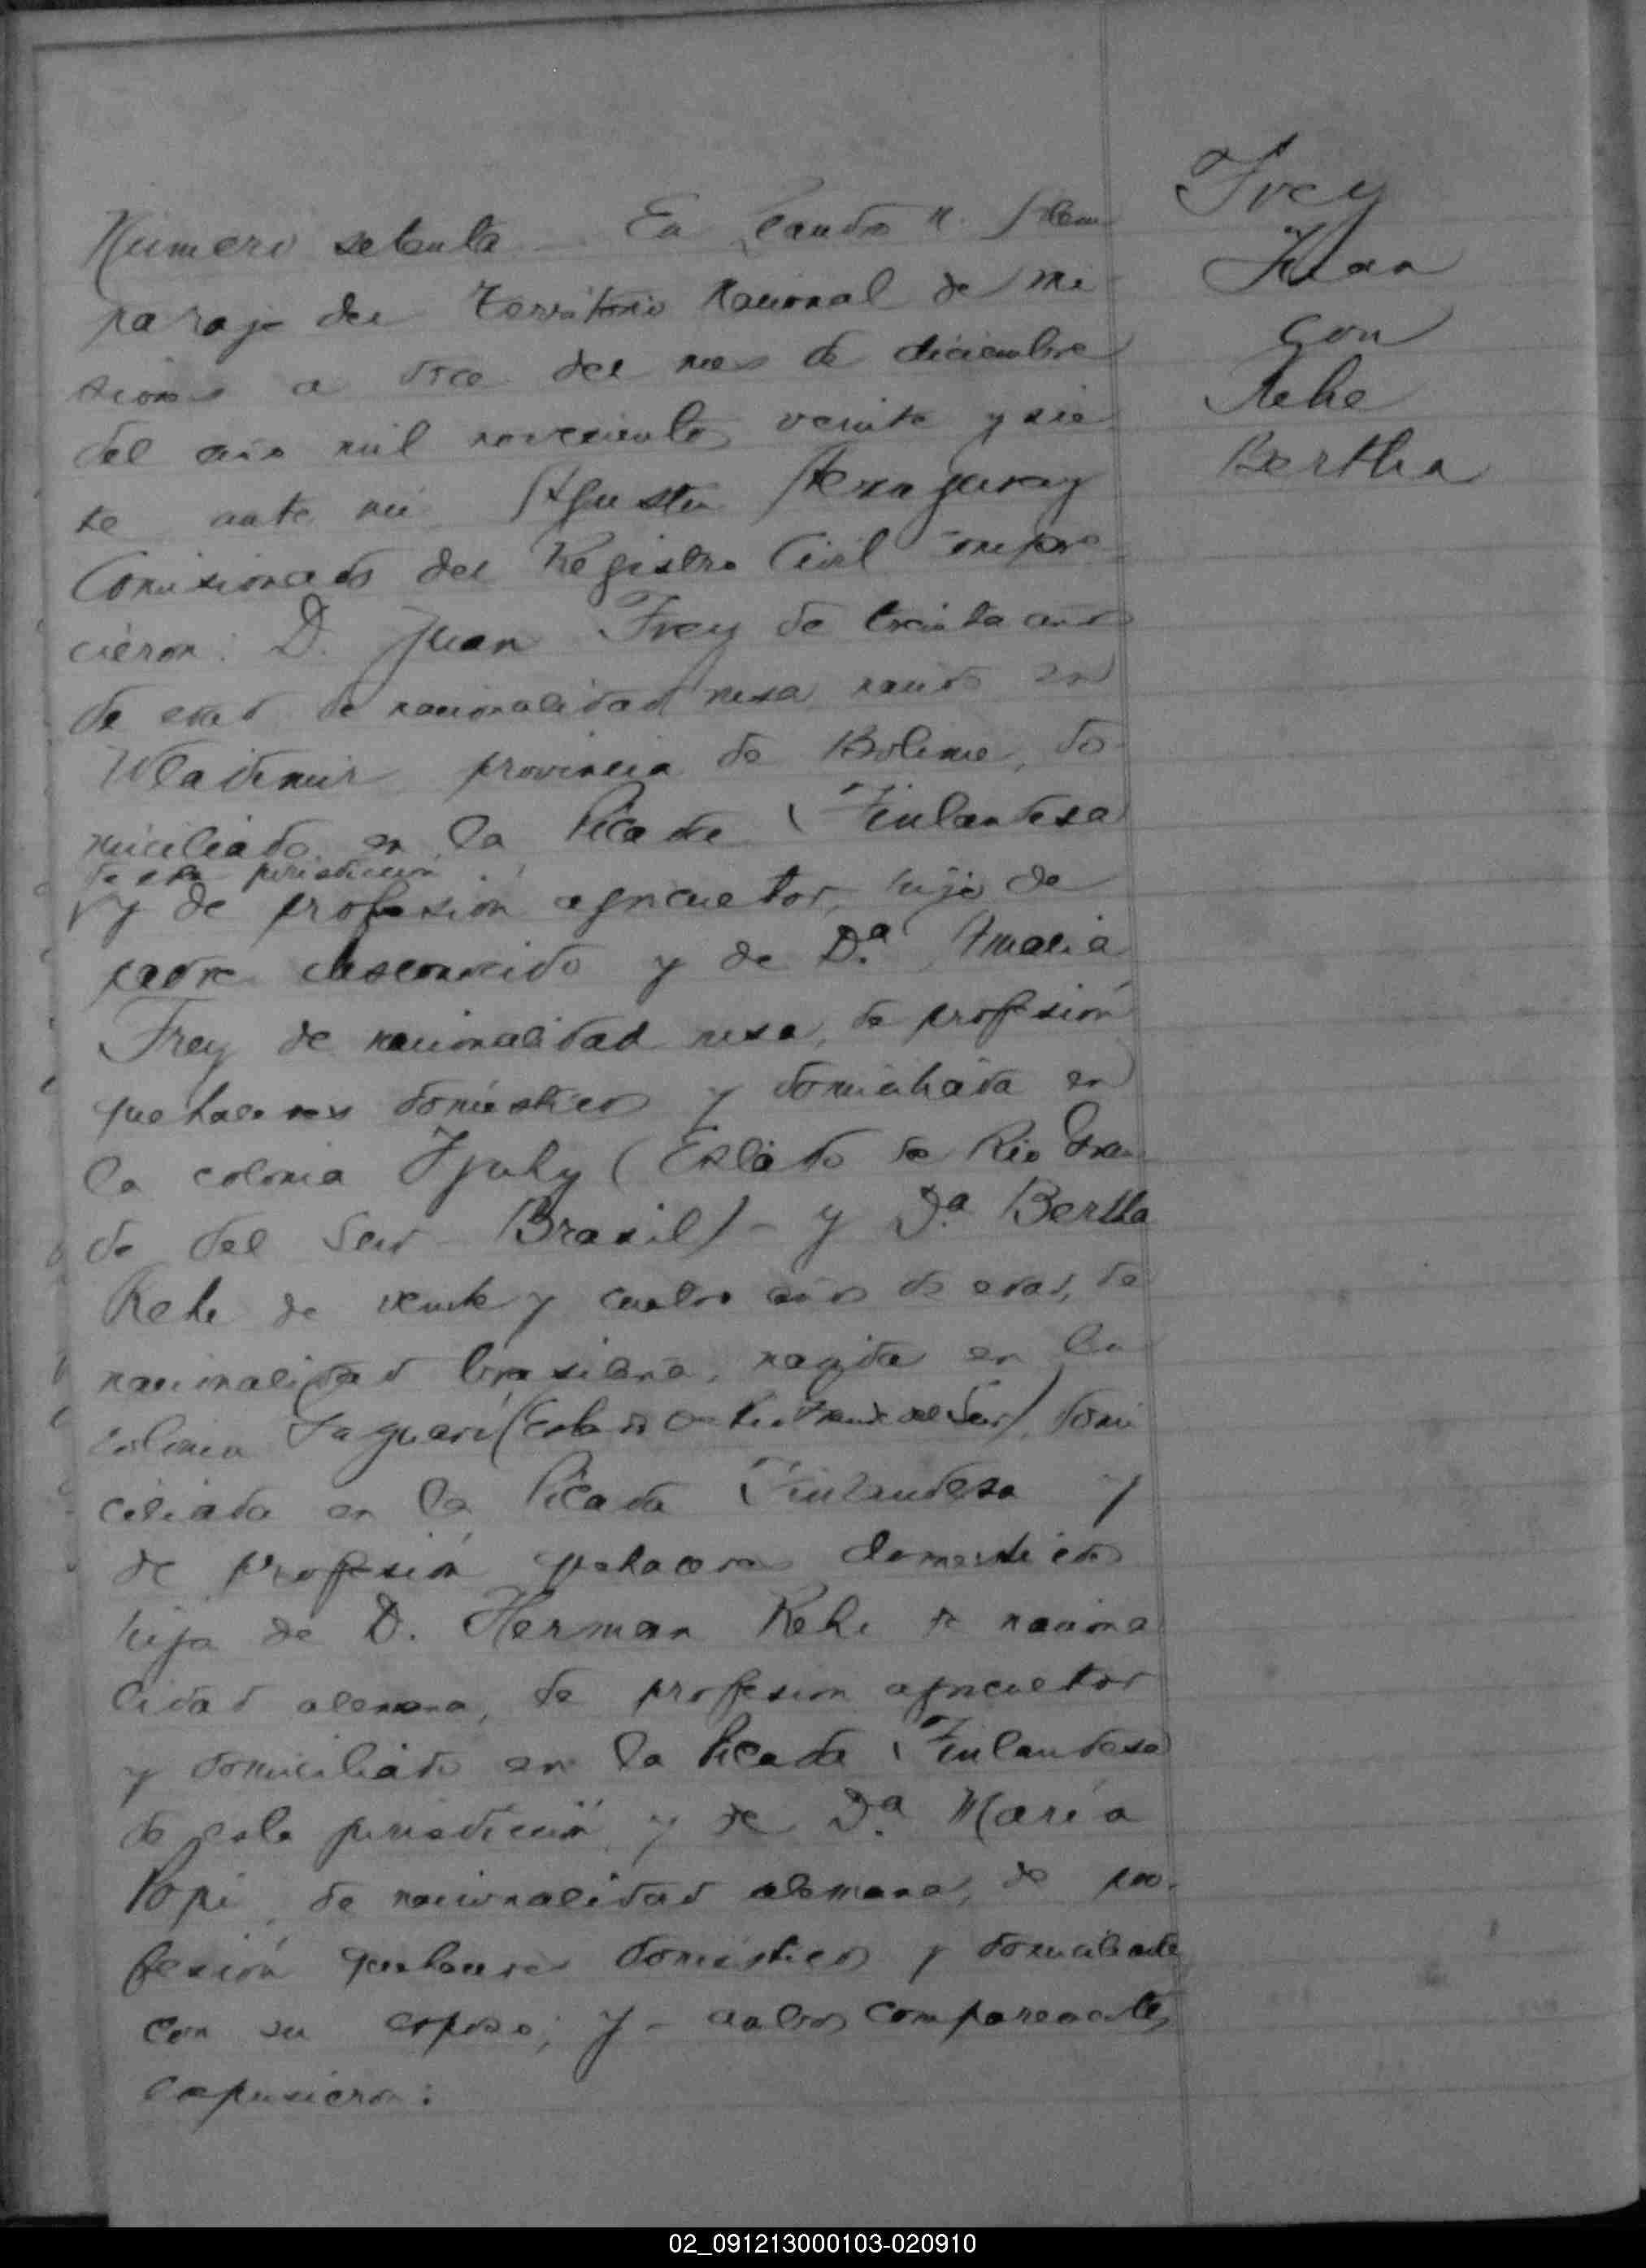 Número setenta — En Leandro N. Alem
paraje del Territorio Nacional de Mi-
siones a doce del mes de diciembre
del año mil novecientos veinte y sie-
te ante mi Agustín
Comisionado del Registro Civil compare-
cieron: D. Juan Frey de treinta años
de edad de nacionalidad rusa nacido en
Wladimir provincia de Boline, do-
miciliado en la Picada Finlandesa
de esta jurisdicción
y de profesión agricultor, hijo de
padre desconocido y de Dª Amalia
Frey de nacionalidad rusa, de profesión
quehaceres domésticos y domiciliada en
la colonia Yjuhy (Estado de Rio Gran-
de del Sur – Brasil) – y Dª Bertha
Rehe de veinte y cuatro años de edad, de
nacionalidad brasilera, nacida en la
colonia Jaguari (Estado de Rio Grande del Sur), domi
ciliada en la Picada Finlandesa y
de profesión quehaceres domesticos
hija de D. Herman Rehe de naciona
lidad alemana, de profesion agricultor
y domiciliado en la Picada Finlandesa
de esta jurisdicción y de Dª María
Popi, de nacionalidad alemana, de pro-
fesión quehaceres domésticos y domiciliada
con su esposo; y – ambos comparecientes
expusieron:
Frey
Juan
con
Rehe
Bertha
02_091213000103-020910